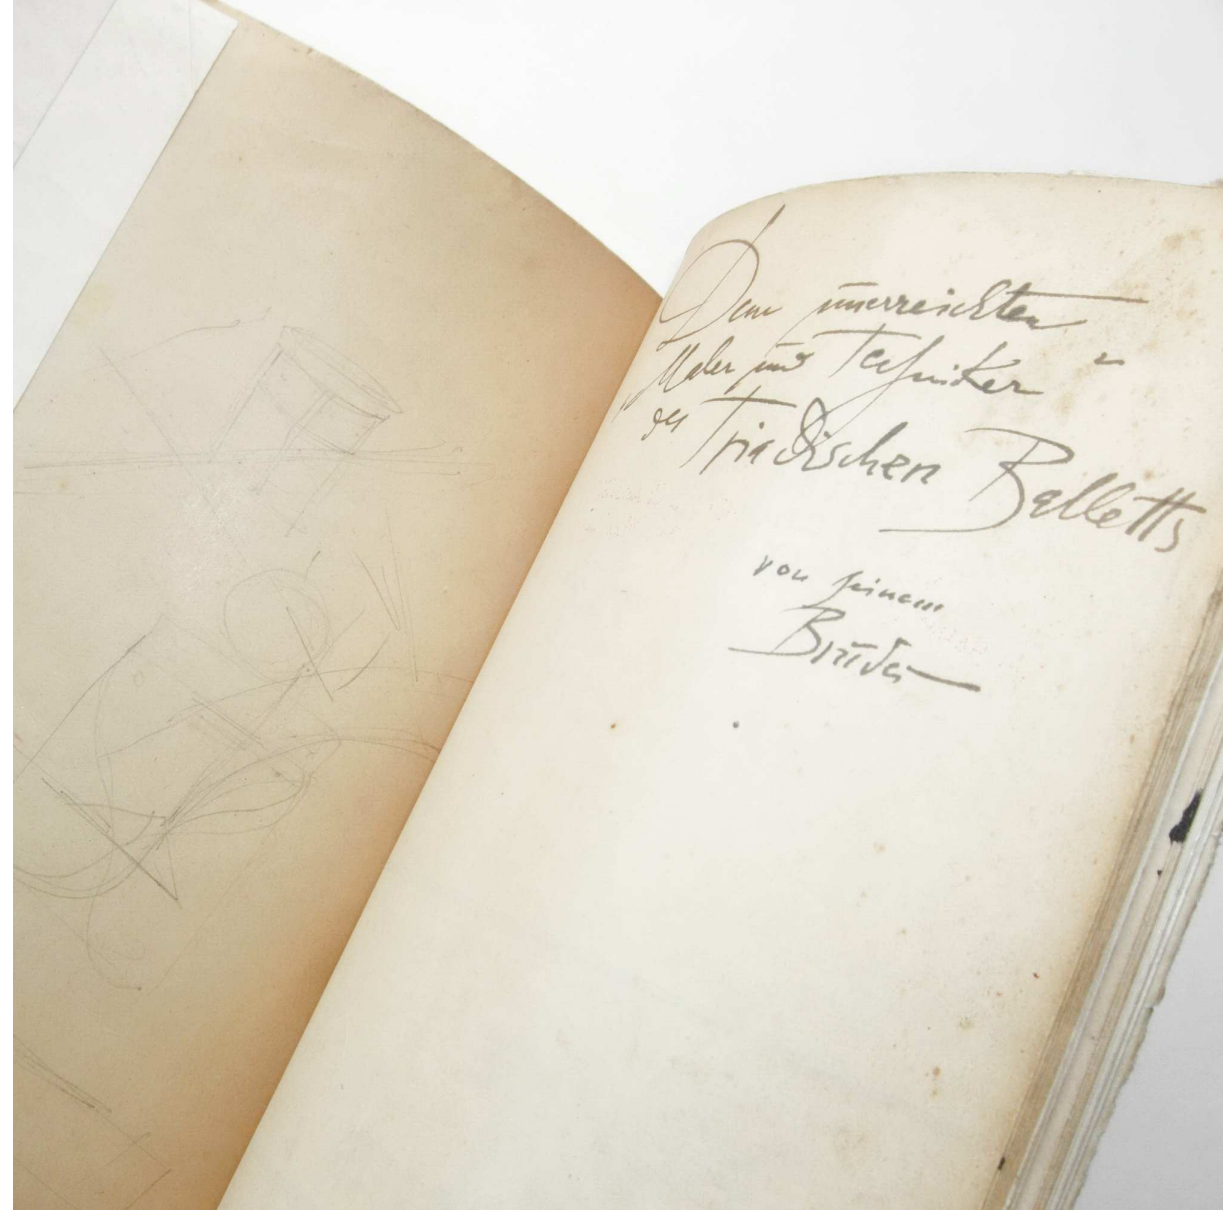 Dem unerreichten
„Maler und Techniker“
des Triadischen Balletts
von seinem
Bruder